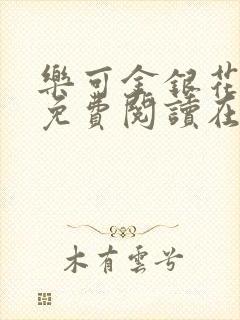 樂可金銀花
免費閱讀在
木有雲兮